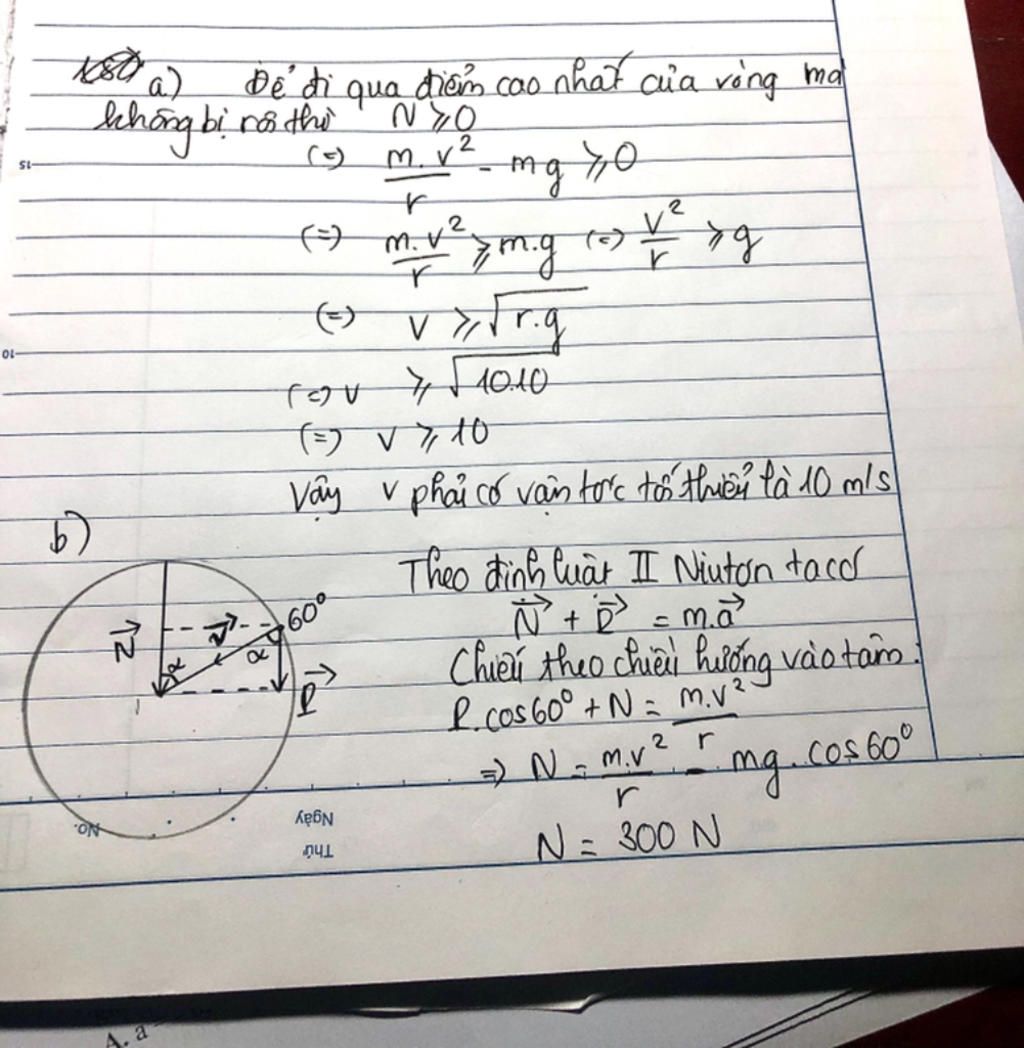 a) Để đi qua điểm cao nhất của vòng mà
không bị rơi thì N ≥ 0
(=) m.v²/r - mg ≥ 0
(=) m.v²/r ≥ m.g (=) v²/r ≥ g
(=) v ≥ √r.g
(=) v ≥ √10.10
(=) v ≥ 10
Vậy v phải có vận tốc tối thiểu là 10 m/s
b)
Theo định luật II Niutơn ta có
N⃗ + P⃗ = m.a⃗
Chiếu theo chiều hướng vào tâm:
P.cos60° + N = m.v²/r
=> N = m.v²/r - mg.cos60°
N = 300 N
60°
N⃗
α
α
P⃗
No.
Ngày
Thứ
15
10
A. a